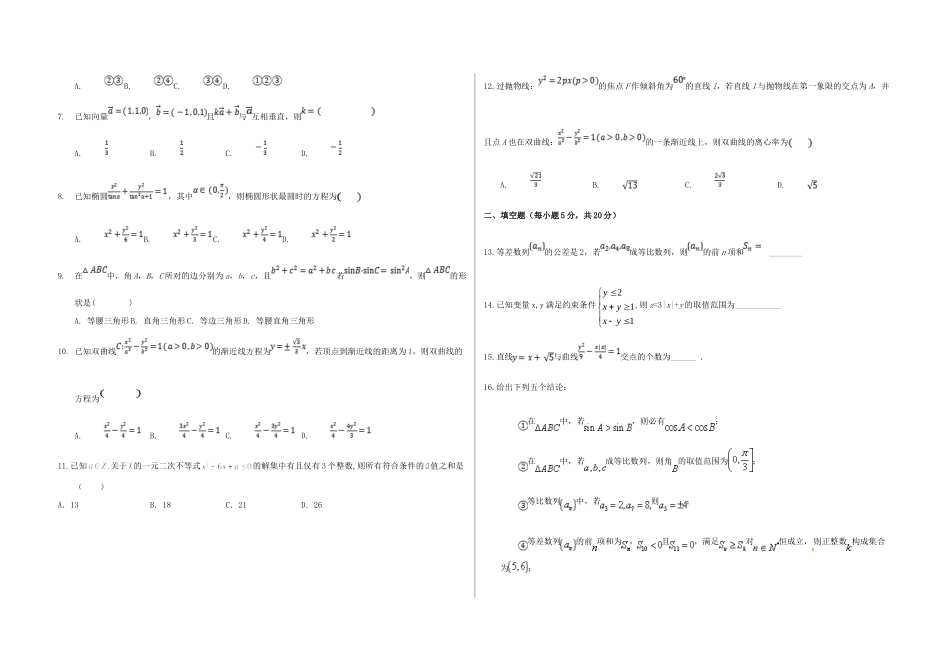 A. ②③B. ②④C. ③④D. ①②③
7. 已知向量a⃗=(1,1,0), b⃗=(−1,0,1)且ka⃗+b⃗与a⃗互相垂直, 则k=( )
A. 1/3 B. 1/2 C. −1/3 D. −1/2
8. 已知椭圆x²/tanα+y²/(tan²α+1)=1, 其中α∈(0,π/2), 则椭圆形状最圆时的方程为( )
A. x²+y²/6=1B. x²+y²/3=1C. x²+y²/4=1D. x²+y²/2=1
9. 在△ABC中, 角A, B, C所对的边分别为a, b, c, 且b²+c²=a²+bc若sinB·sinC=sin²A, 则△ABC的形
状是( )
A. 等腰三角形B. 直角三角形C. 等边三角形D. 等腰直角三角形
10. 已知双曲线C:x²/a²−y²/b²=1(a>0,b>0)的渐近线方程为y=±√3/3x, 若顶点到渐近线的距离为1, 则双曲线的
方程为( )
A. x²/4−y²/4=1 B. 3x²/4−y²/4=1 C. x²/4−3y²/4=1 D. x²/4−4y²/3=1
11.已知a∈Z.关于x的一元二次不等式x²−6x+a≤0的解集中有且仅有3个整数,则所有符合条件的a值之和是
( )
A.13 B.18 C.21 D.26
12.过抛物线: y²=2px(p>0)的焦点F作倾斜角为60°的直线l, 若直线l与抛物线在第一象限的交点为A, 并
且点A也在双曲线: x²/a²−y²/b²=1(a>0,b>0)的一条渐近线上, 则双曲线的离心率为( )
A. √23/3 B. √13 C. 2√3/3 D. √5
二、填空题（每小题5分，共20分）
13.等差数列{aₙ}的公差是2, 若a₂,a₄,a₈成等比数列, 则{aₙ}的前n项和Sₙ= ________
14.已知变量x,y满足约束条件{y≤2
x+y≥1,
x−y≤1
则z=3|x|+y的取值范围为___________
15.直线y=x+√5与曲线y²/9−x|x|/4=1交点的个数为______ .
16.给出下列五个结论:
①在△ABC中, 若sinA>sinB, 则必有cosA<cosB;
②在△ABC中, 若a,b,c成等比数列, 则角B的取值范围为(0,π/3];
③等比数列{aₙ}中, 若a₃=2,a₇=8,则a₅=±4;
④等差数列{aₙ}的前n项和为Sₙ, S₁₀<0且S₁₁=0, 满足Sₙ≥Sₖ对n∈N*恒成立, 则正整数k构成集合
为{5,6};